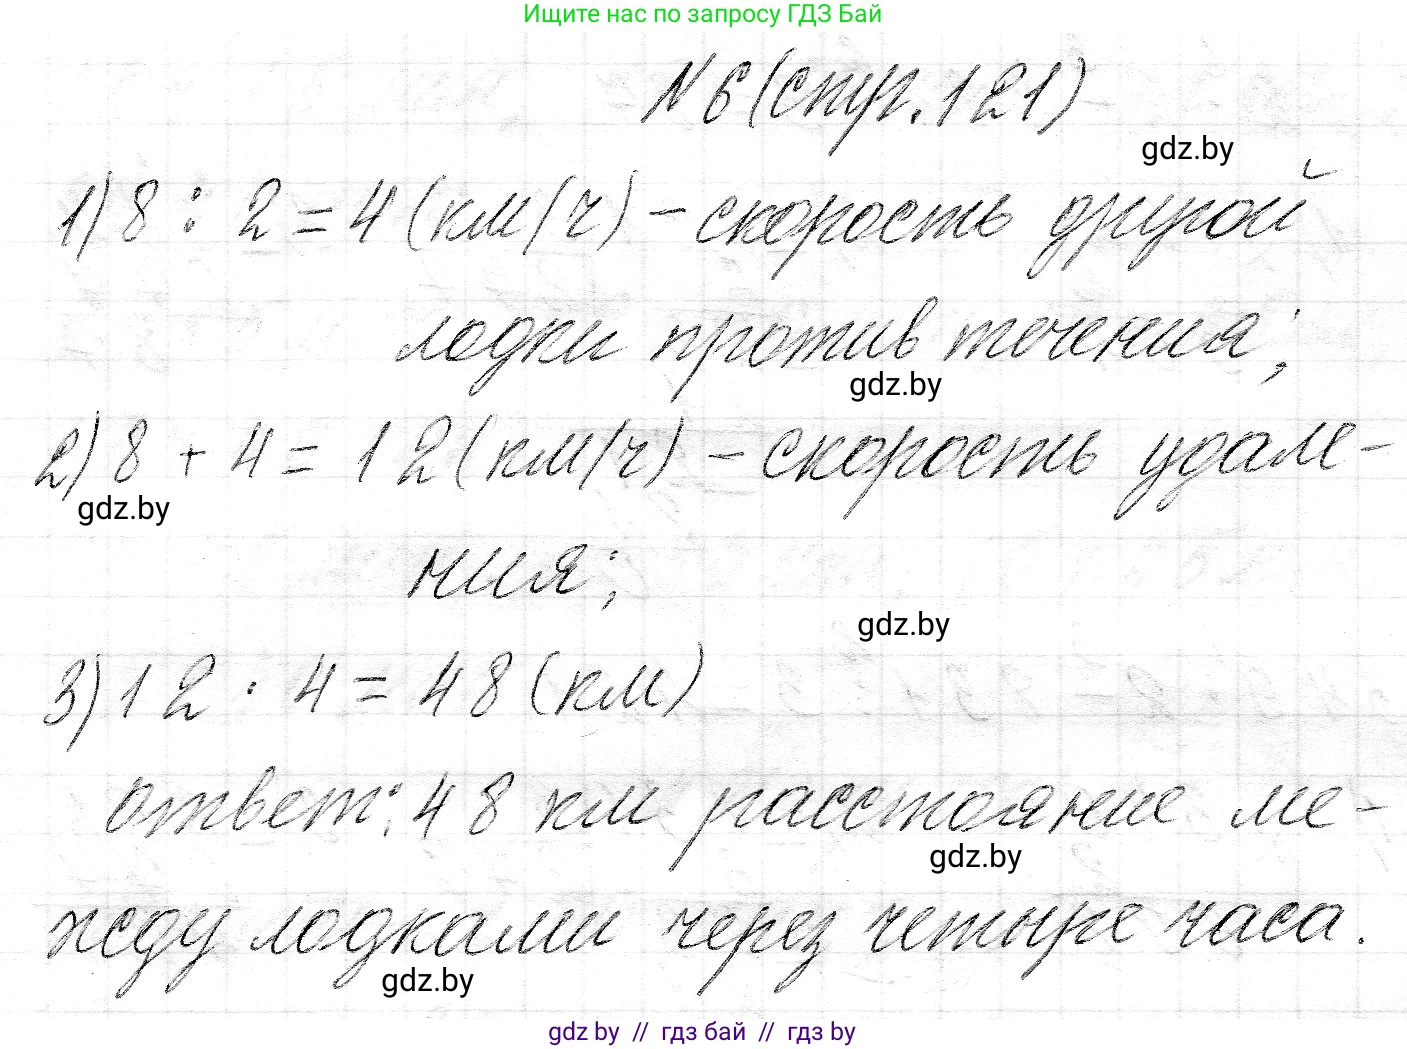 Ищите нас по запросу ГДЗ Бай
№6(стр.121)
gdz.by
1) 8 : 2 = 4 (км/ч) - скорость другой
лодки против течения;
gdz.by
2) 8 + 4 = 12 (км/ч) - скорость удале-
gdz.by
ния;
gdz.by
3) 12 · 4 = 48 (км)
ответ: 48 км расстояние ме-
gdz.by
жду лодками через четыре часа.
gdz.by
gdz by // гдз бай // гдз by